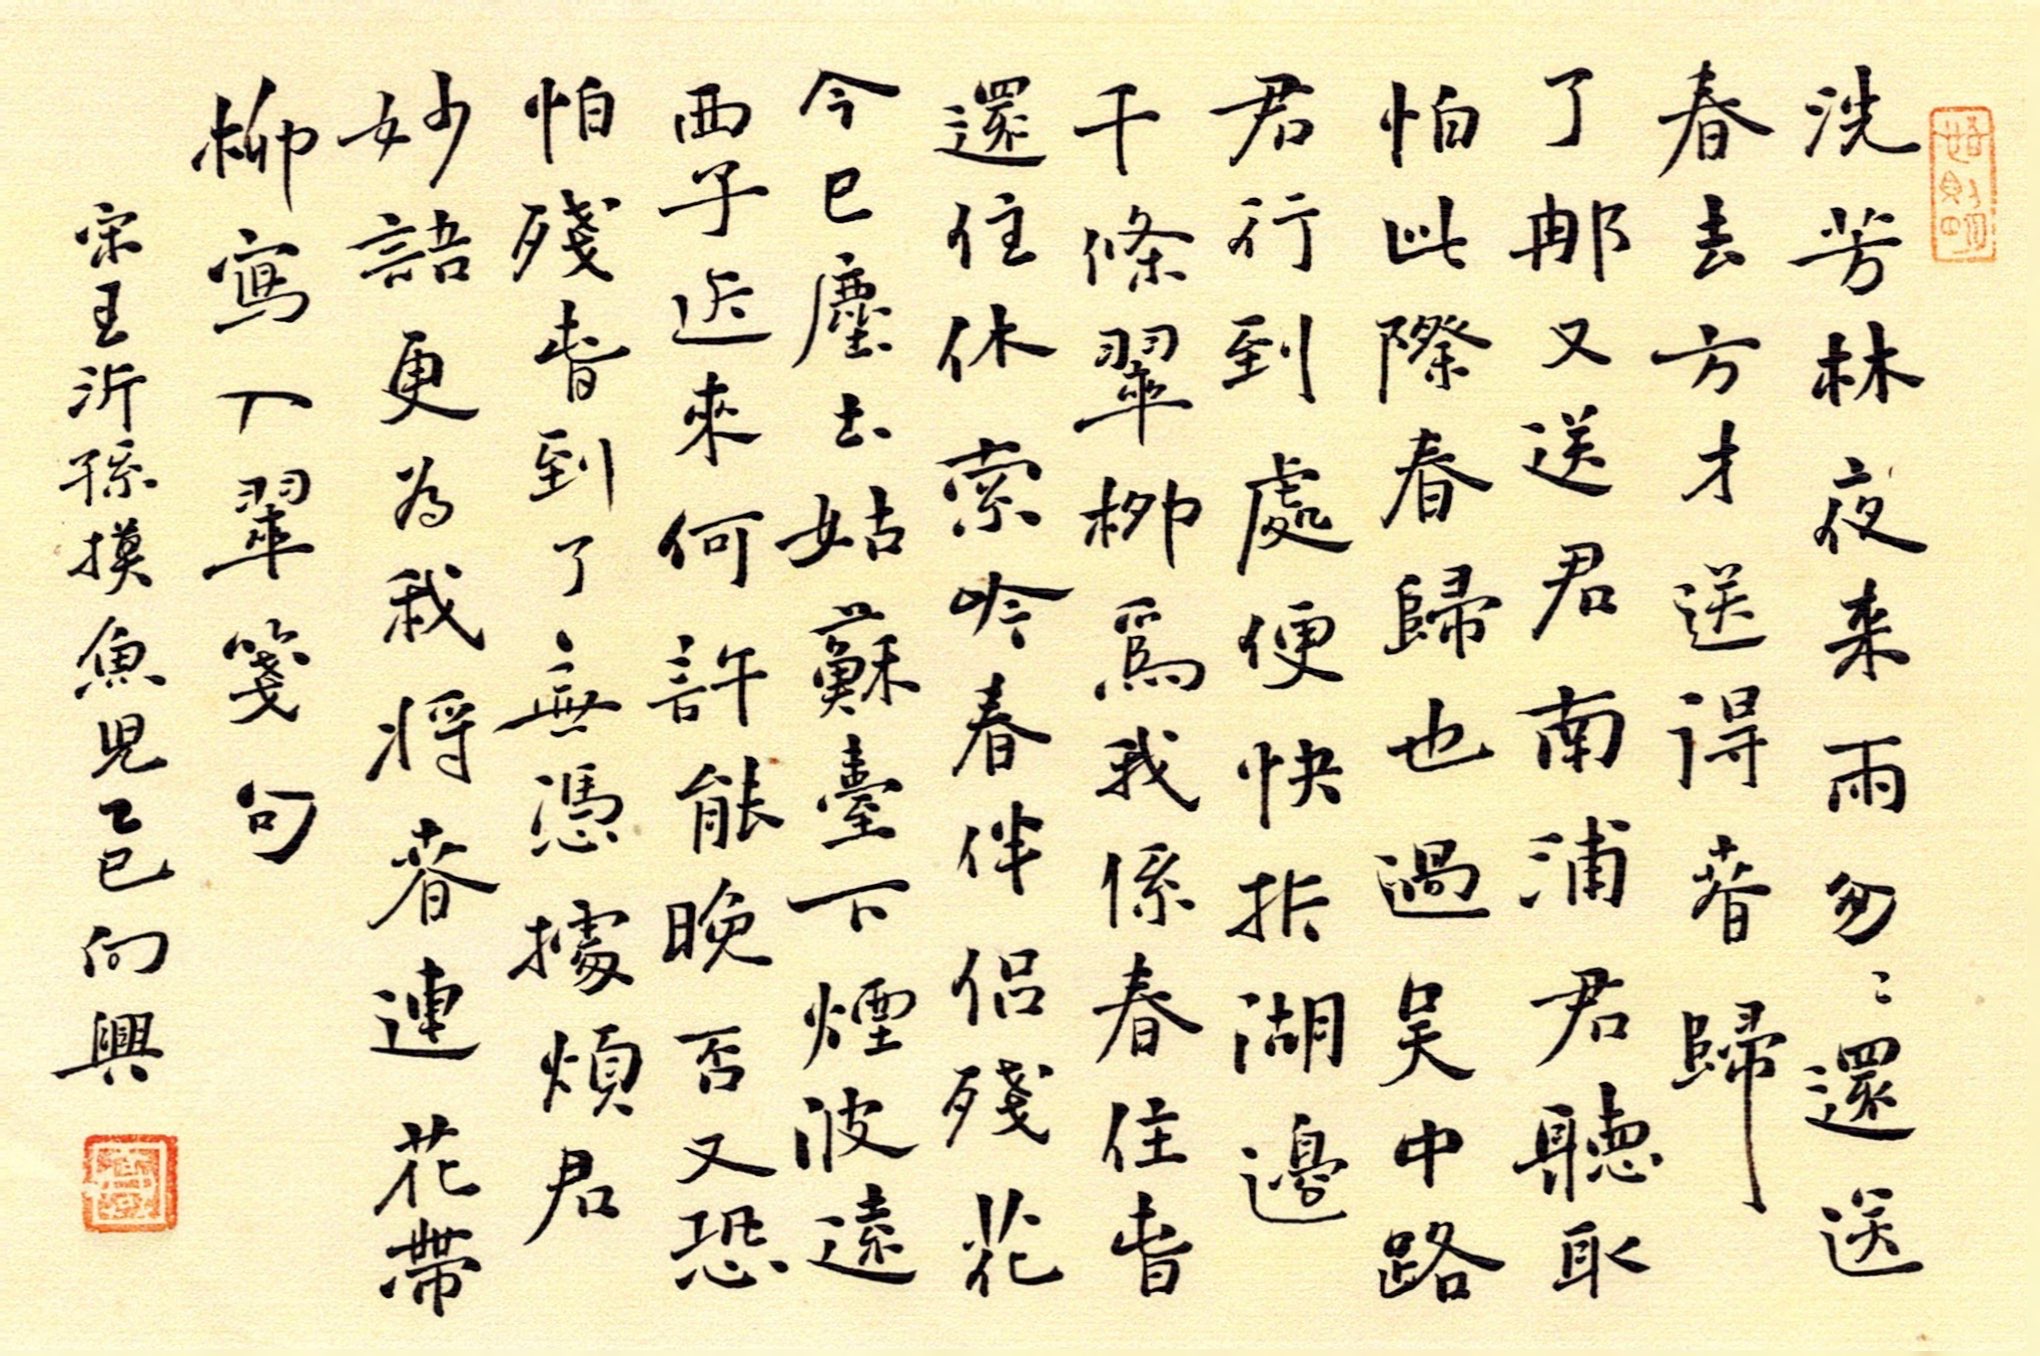 洗芳林夜来雨匆〻還送
春去方才送得春歸
了那又送君南浦君聽取
怕此際春歸也過吴中路
君行到處便快折湖邊
千條翠柳爲我係春住春
還住休索吟春伴侶殘花
今已塵土姑蘇臺下煙波遠
西子近來何許能晚否又恐
怕殘春到了無憑據煩君
妙語更為我將春連花帶
柳寫入翠箋句
宋王沂孫摸魚児乙巳向興